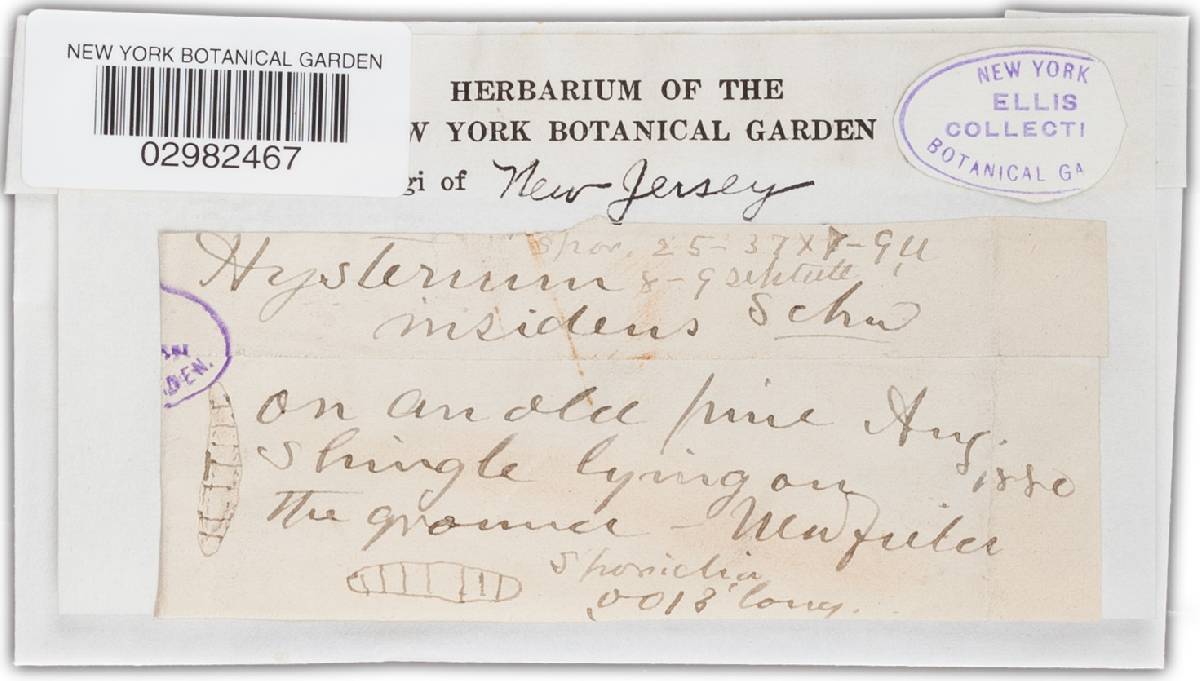 NEW YORK BOTANICAL GARDEN
02982467
HERBARIUM OF THE
W YORK BOTANICAL GARDEN
gi of New Jersey
NEW YORK
ELLIS
COLLECTI
BOTANICAL GA
spor. 25-37x7-9µ
Hysterium 8-9 septate
insidens Schw
DEN.
on an old pine Aug.
shingle lying on 1880
the ground - Newfield
Sporidia
.0013 long.